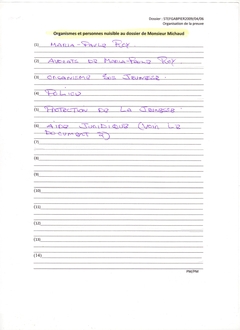 Organisation de la preuve
Organismes et personnes nuisible au dossier de Monsieur Michaud
(1) MARIA-PAULE ROY
(2) AVOCATS DE MARIA-PAULE ROY
(3) ORGANISME DES JEUNESSE
(4) POLICE
(5) PROTECTION DE LA JEUNESSE
(6) AIDE JURIDIQUE (VOIR LE
DOCUMENT
(7)
(8)
(9)
(10)
(11)
(12)
(13)
(14)